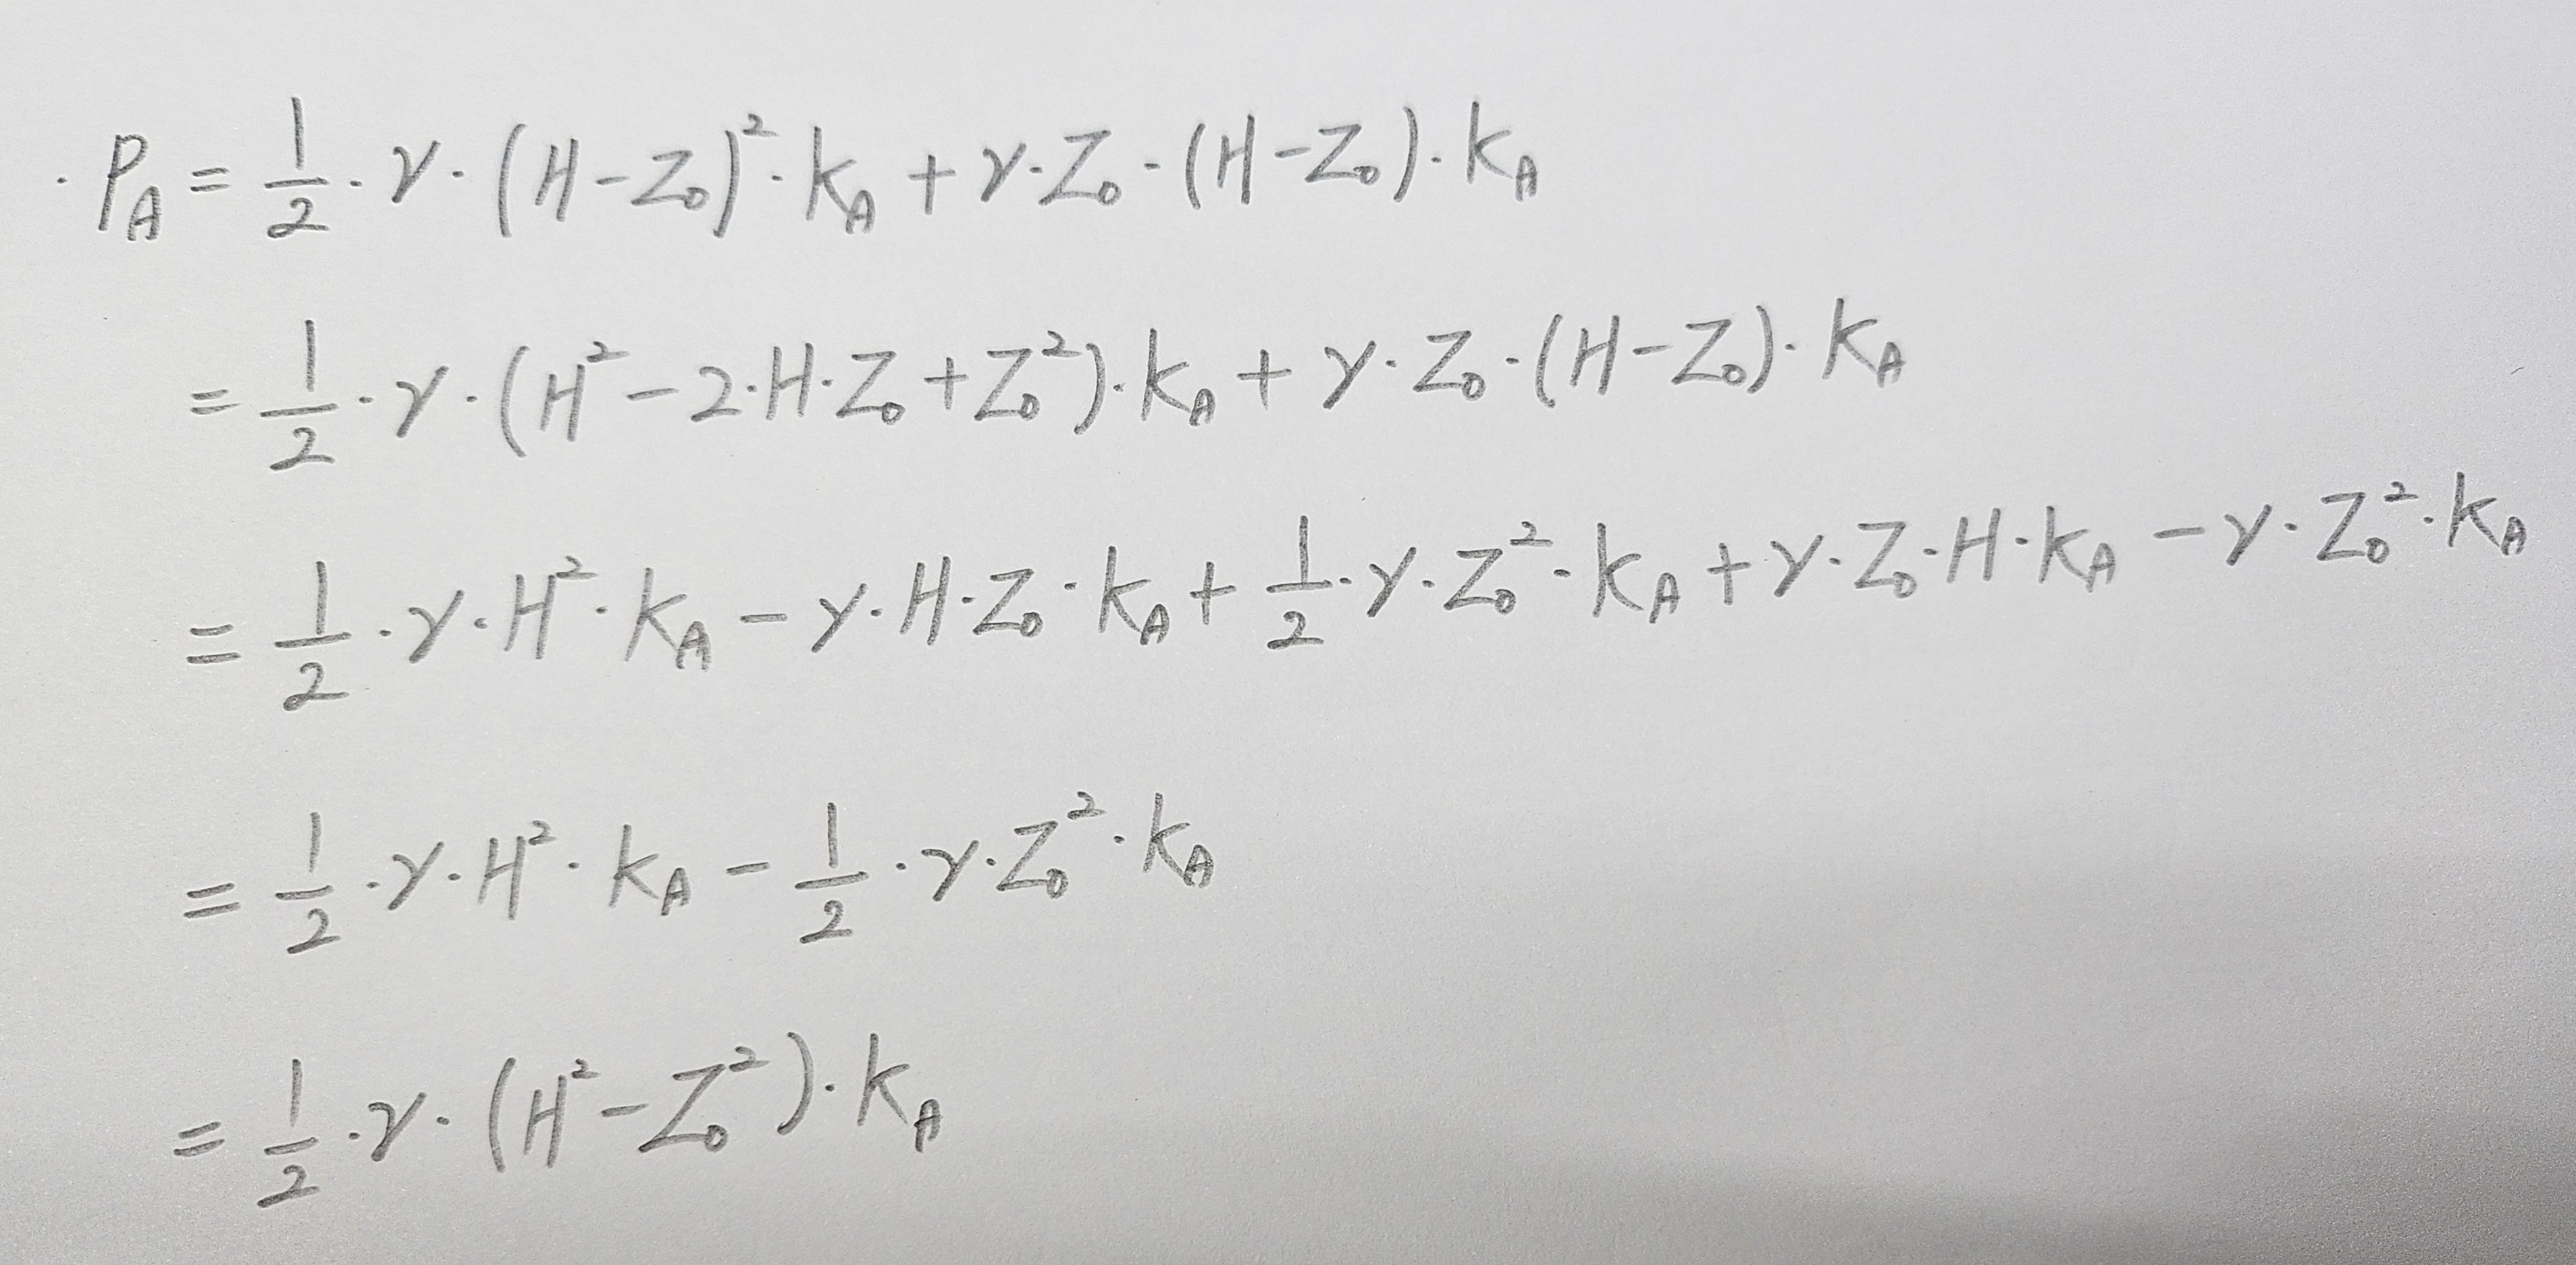 · P_A = 1/2 · γ · (H - Z₀)² · K_A + γ · Z₀ · (H - Z₀) · K_A
= 1/2 · γ · (H² - 2 · H · Z₀ + Z₀²) · K_A + γ · Z₀ · (H - Z₀) · K_A
= 1/2 · γ · H² · K_A - γ · H · Z₀ · K_A + 1/2 · γ · Z₀² · K_A + γ · Z₀ · H · K_A - γ · Z₀² · K_A
= 1/2 · γ · H² · K_A - 1/2 · γ · Z₀² · K_A
= 1/2 · γ · (H² - Z₀²) · K_A